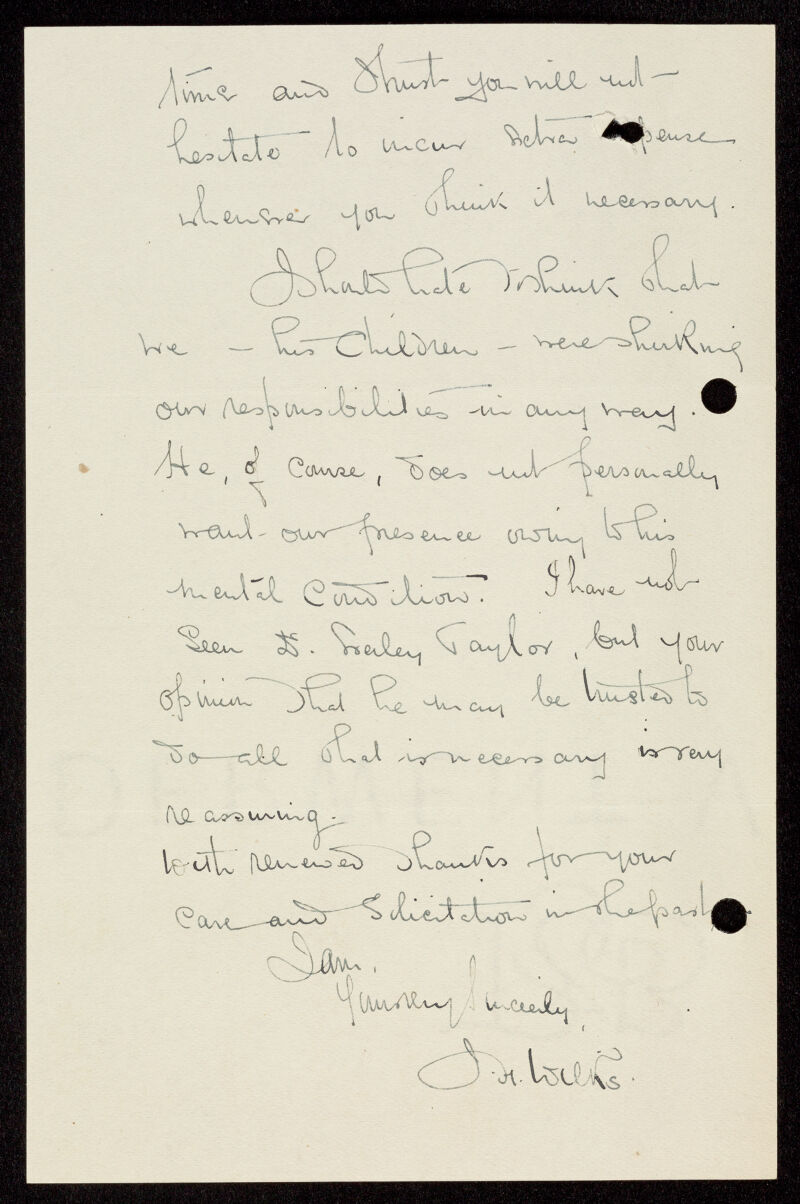 time and I trust you will not
hesitate to incur extra expense
whenever you think it necessary.
I should hate to think that
we - his children - were shirking
our responsibilities in any way.
He, of course, does not personally
want our presence owing to his
mental condition. I have not
seen Dr. Taylor, but your
opinion that he may be trusted to
do all that is necessary is very
reassuring.
With renewed thanks for your
care and solicitation in the past,
I am,
Yours very sincerely,
J. H. Wilks.